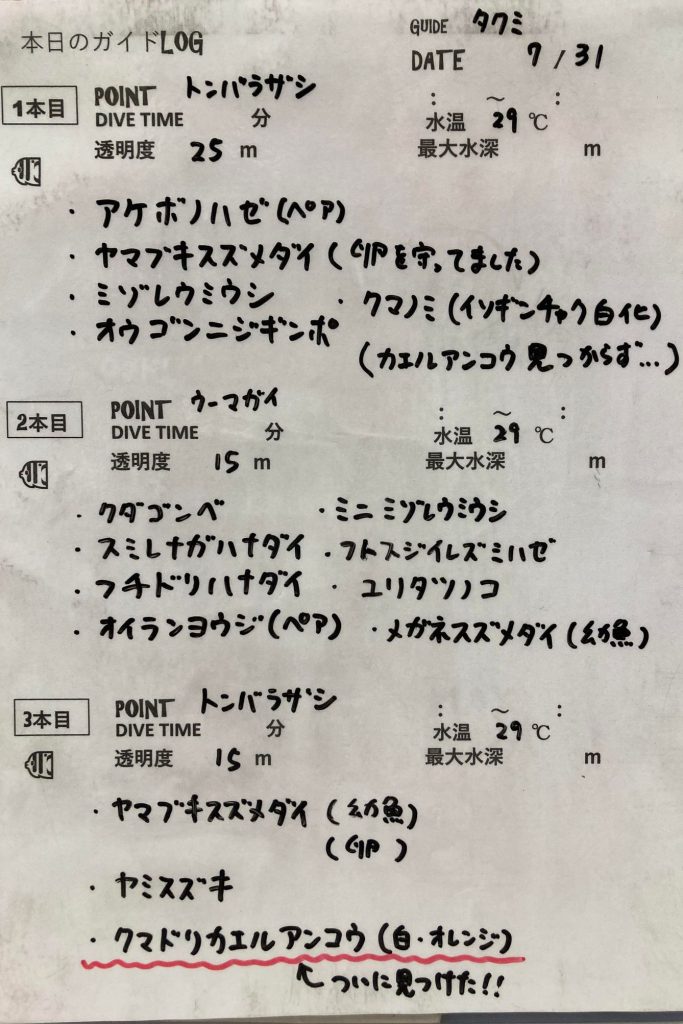 本日のガイドLOG
GUIDE タクミ
DATE 7/31
1本目 POINT トンバラザシ
DIVE TIME 分 : ～ :
水温 29℃
透明度 25 m 最大水深 m
・アケボノハゼ(ペア)
・ヤマブキスズメダイ(卵を守ってました)
・ミゾレウミウシ ・クマノミ(イソギンチャク白化)
・オウゴンニジギンポ
(カエルアンコウ見つからず...)
2本目 POINT ウーマガイ
DIVE TIME 分 : ～ :
水温 29℃
透明度 15 m 最大水深 m
・クダゴンベ ・ミニミゾレウミウシ
・スミレナガハナダイ ・フトスジイレズミハゼ
・フチドリハナダイ ・ユリタツノコ
・オイランヨウジ(ペア) ・メガネスズメダイ(幼魚)
3本目 POINT トンバラザシ
DIVE TIME 分 : ～ :
水温 29℃
透明度 15 m 最大水深 m
・ヤマブキスズメダイ(幼魚)
(卵)
・ヤミスズキ
・クマドリカエルアンコウ(白・オレンジ)
↖ついに見つけた!!